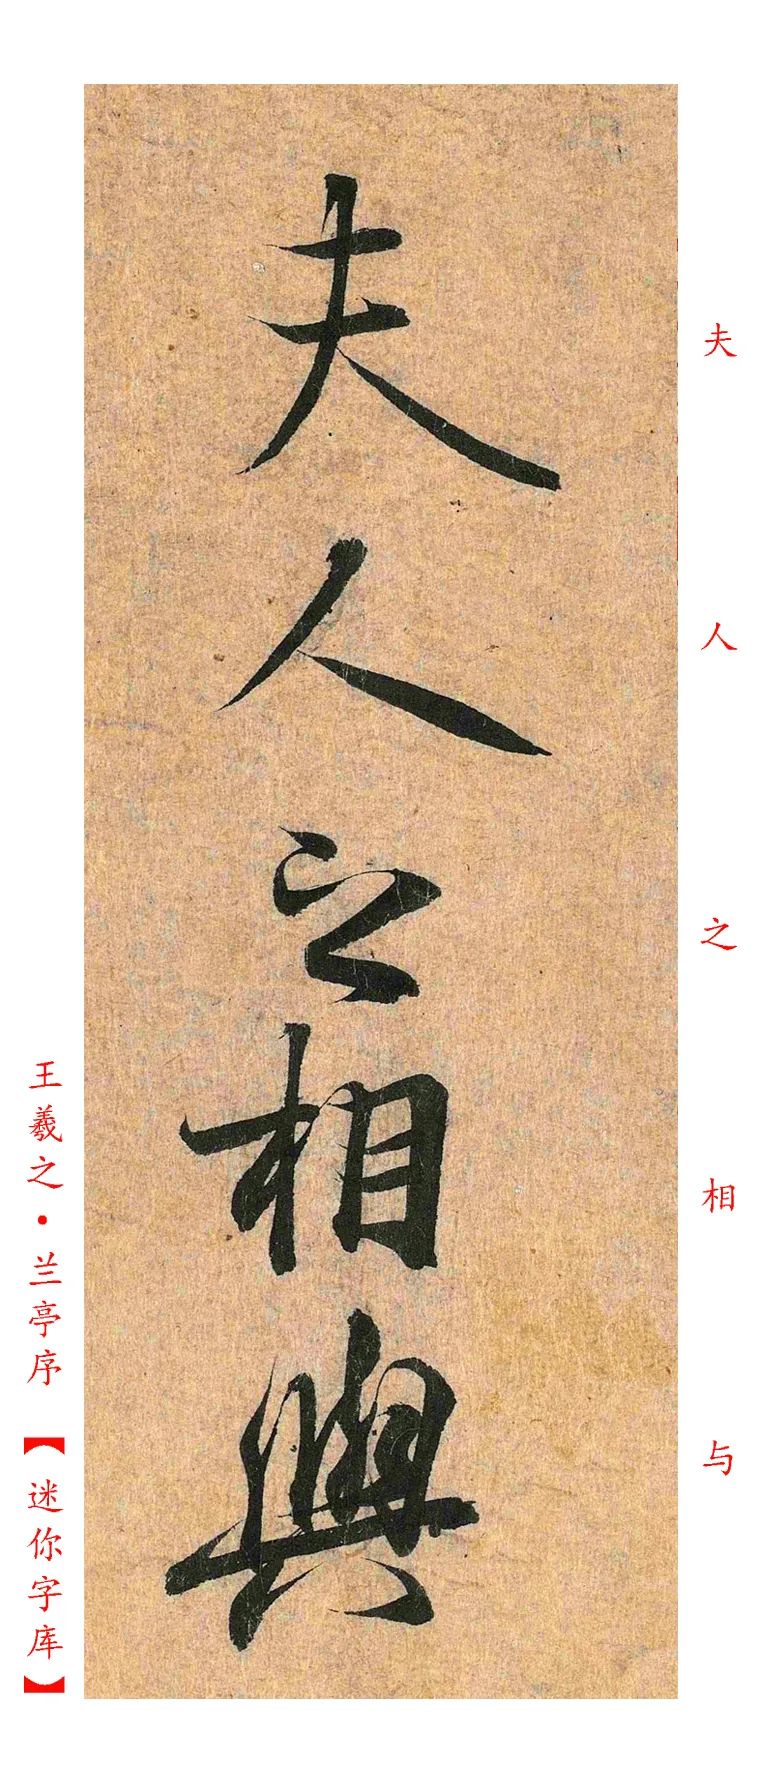 夫人之相與
夫人之相与
王羲之·兰亭序【迷你字库】